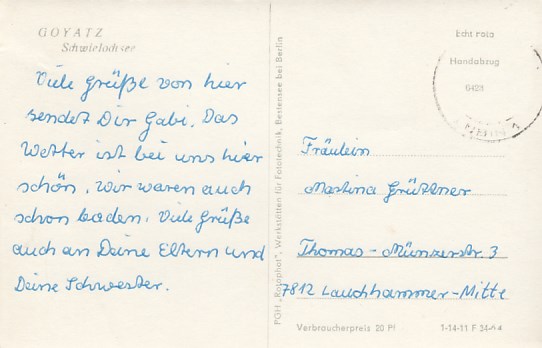 GOYATZ
Schwielochsee
Viele Grüße von hier
sendet Dir Gabi. Das
Wetter ist bei uns hier
schön. Wir waren auch
schon baden. Viele Grüße
auch an Deine Eltern und
Deine Schwester.
PGH „Rotophot“, Werkstätten für Fototechnik, Bestensee bei Berlin
Echt roto
Handabzug
6428
Fräulein
Martina Grützner
Thomas-Münzerstr. 3
7812 Lauchhammer-Mitte
Verbraucherpreis 20 Pf
1-14-11 F 34-64